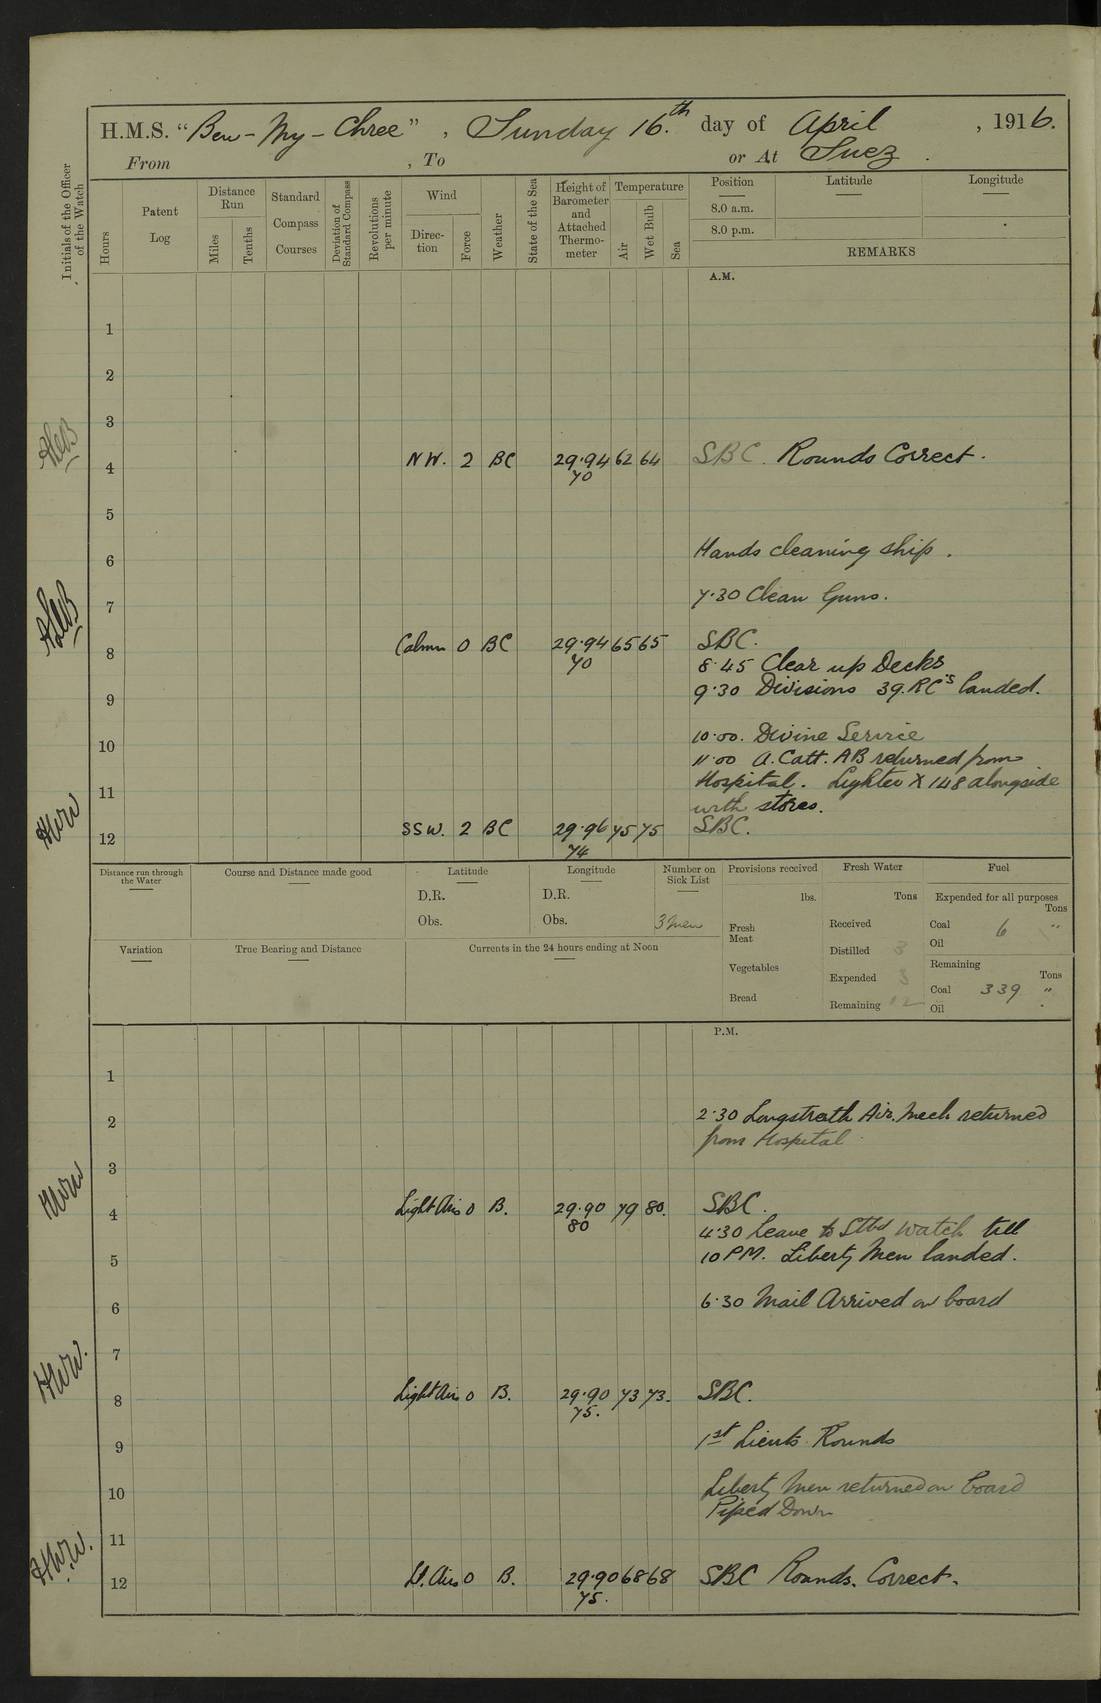 H.M.S. "Ben-My-Chree", Sunday 16.th day of April, 1916.
From , To or At Suez.
Initials of the Officer of the Watch
Hours
Patent Log
Distance Run
Miles
Tenths
Standard Compass Courses
Deviation of Standard Compass
Revolutions per minute
Wind
Direc-tion
Force
Weather
State of the Sea
Height of Barometer and Attached Thermo-meter
Temperature
Air
Wet Bulb
Sea
Position Latitude Longitude
8.0 a.m.
8.0 p.m.
REMARKS
A.M.
1
2
3
4 NW. 2 BC 29.94 62 64 SBC. Rounds Correct.
70
5
6 Hands cleaning ship.
7 7.30 Clean Guns.
8 Calm 0 BC 29.94 65 65 SBC.
70 8.45 Clear up Decks
9 9.30 Divisions 39. RC's landed.
10 10.00. Divine Service
11.00 A. Catt. AB returned from
11 Hospital. Lighter X 148 alongside
with stores.
12 SSW. 2 BC 29.96 75 75 SBC.
74
Distance run through the Water
Course and Distance made good
Latitude
D.R.
Obs.
Longitude
D.R.
Obs.
Number on Sick List
3 men
Provisions received
lbs.
Fresh Meat
Vegetables
Bread
Fresh Water
Tons
Received
Distilled 3
Expended 3
Remaining 12
Fuel
Expended for all purposes
Tons
Coal 6 "
Oil
Remaining
Tons
Coal 339 "
Oil
Variation
True Bearing and Distance
Currents in the 24 hours ending at Noon
P.M.
1
2 2.30 Longstreath Air. Mech returned
from Hospital
3
4 Light Airs 0 B. 29.90 79 80. SBC.
80 4.30 Leave to Stbd watch till
5 10 PM. Liberty Men landed.
6 6.30 Mail Arrived on board
7
8 Light Airs 0 B. 29.90 73 73. SBC.
75.
9 1st Lieuts Rounds
10 Liberty Men returned on board
Piped Down
11
12 Lt. Airs 0 B. 29.90 68 68 SBC Rounds. Correct.
75.